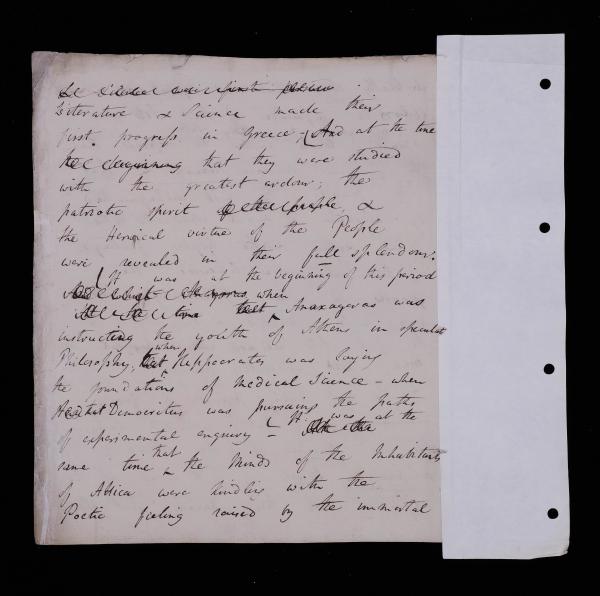 Literature & Science made their
first progress in Greece; And at the time
the beginning that they were studied
with the greatest ardour; the
patriotic spirit of the people, &
the Heroical virtue of the People
were revealed in their full splendour.
It was at the beginning of this period
when
Anaxagoras was
instructing the youth of Athens in speculat
Philosophy, when that Hippocrates was laying
the foundations of Medical Science – when
that Democritus was pursuing the paths
of experimental enquiry – It was at the
same time that the Minds of the Inhabitants
of Attica were kindled with the
Poetic feeling raised by the immortal